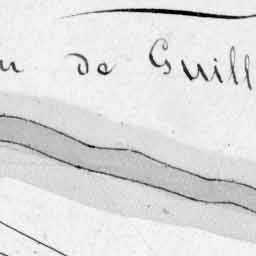 u de Guill